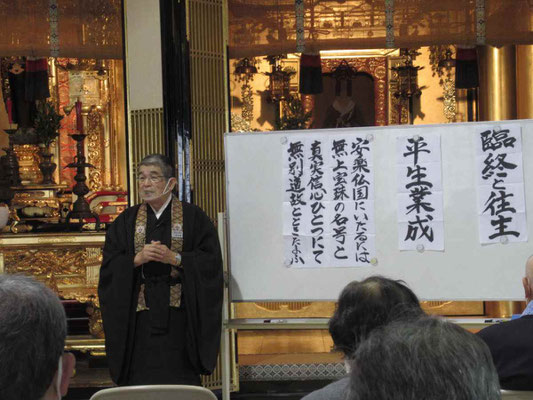 臨終と往生
平生業成
安楽仏国にいたるには
無上宝珠の名号と
真実信心ひとつにて
無別道故とときたまふ